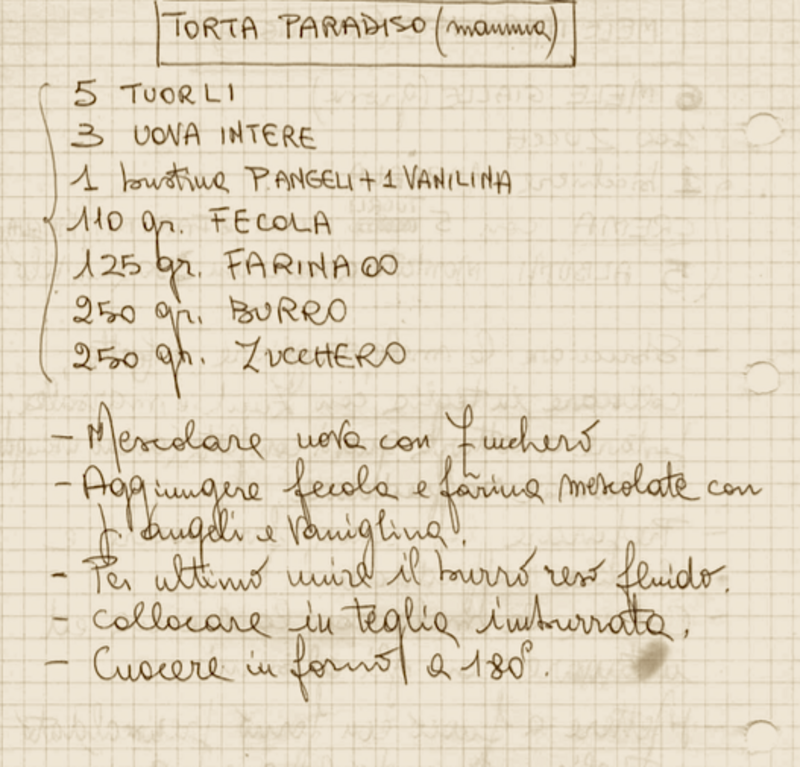 TORTA PARADISO (mamma)
5 TUORLI
3 UOVA INTERE
1 bustina P. ANGELI + 1 VANILINA
110 gr. FECOLA
125 gr. FARINA 00
250 gr. BURRO
250 gr. ZUCCHERO
- Mescolare uova con zucchero
- Aggiungere fecola e farina mescolate con
p. angeli e vaniglina.
- Per ultimo unire il burro reso fluido.
- Collocare in teglia imburrata.
- Cuocere in forno a 180°.